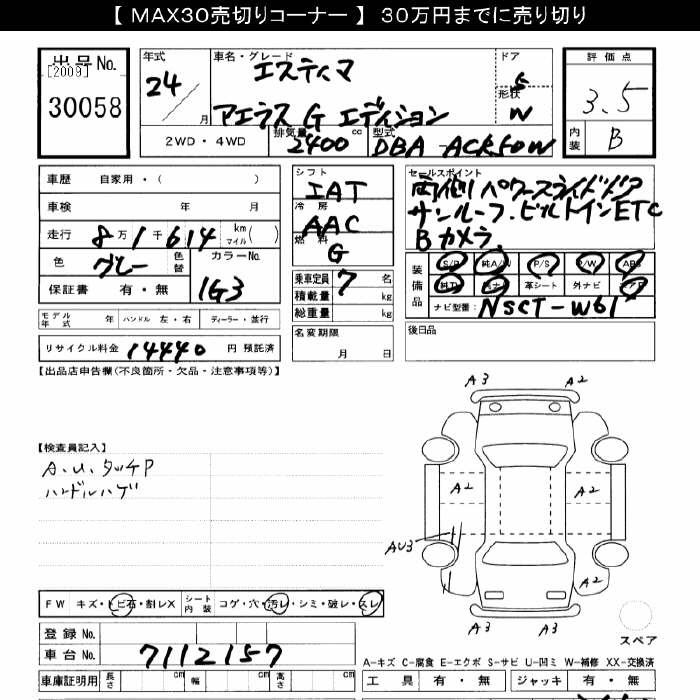 【 MAX30売切りコーナー 】 30万円までに売り切り
出品No.
[2009]
30058
年式
24
月
車名・グレード
エスティマ
アエラス G エディション
ドア
5
形状
W
評価点
3.5
内装
B
2WD・4WD
排気量
2400
cc
型式
DBA ACR50W
車歴 自家用・( )
車検 年 月
走行 8万1千614 km マイル( )
色 グレー
色替
カラーNo.
1G3
保証書 有・無
モデル年式 年
ハンドル 左・右
ディーラー・並行
リサイクル料金 14440 円 預託済
シフト
IAT
冷房
AAC
燃料
G
乗車定員 7 名
積載量 kg
総重量 kg
名変期限
月 日
セールスポイント
両側パワースライドドア
サンルーフ.ビルトインETC
Bカメラ
装備品
S/R 純A/W P/S P/W ABS
純TV 純ナビ 革シート 外ナビ エアB
ナビ型番: NSCT-W61
後日品
【出品店申告欄(不良箇所・欠品・注意事項等)】
【検査員記入】
A.U.タッチP
ハンドルハゲ
A3
A2
A2
A2
AU3
A2
A3
A3
スペア
FW キズ・トビ石・割レX
シート内装
コゲ・穴・汚レ・シミ・破レ・スレ
登録No.
車台No. 7112157
車庫証明用 長さ cm 幅 cm 高さ cm
A-キズ C-腐食 E-エクボ S-サビ U-凹ミ W-補修 XX-交換済
工具 有・無 ジャッキ 有・無